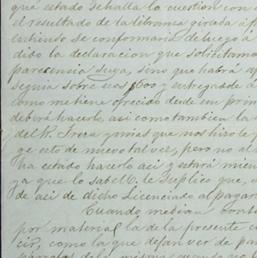 que estado se halla la cuestion con
el resultado de la libranza girada á f
entiendo se conformaria desde luego á
dido la declaracion que solicitamos
parecencia suya, sino que habrá a
seguia sobre esos 1600 y entregada á
como me tiene ofrecido desde un prim
deberá hacerlo, asi como tambien la
del R. Troca ymies que nos hizo le p
ge esto de nuevo tal vez, pero no al
ha estado hacerlo asi y estará mien
ya que lo sabe V. le suplico que,
de asi de dicho Licenciado al pagar
Cuando median cont
por material la de la presente c
cir, como la que dejan ver de pa